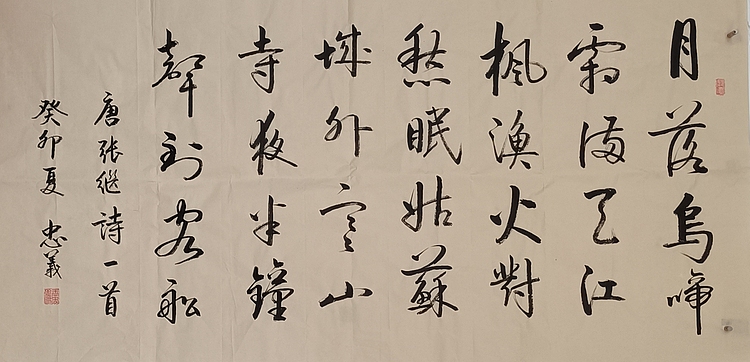 月落烏啼
霜满天江
楓漁火對
愁眠姑蘇
城外寒山
寺夜半鐘
聲到客船
唐張继詩一首
癸卯夏 忠義